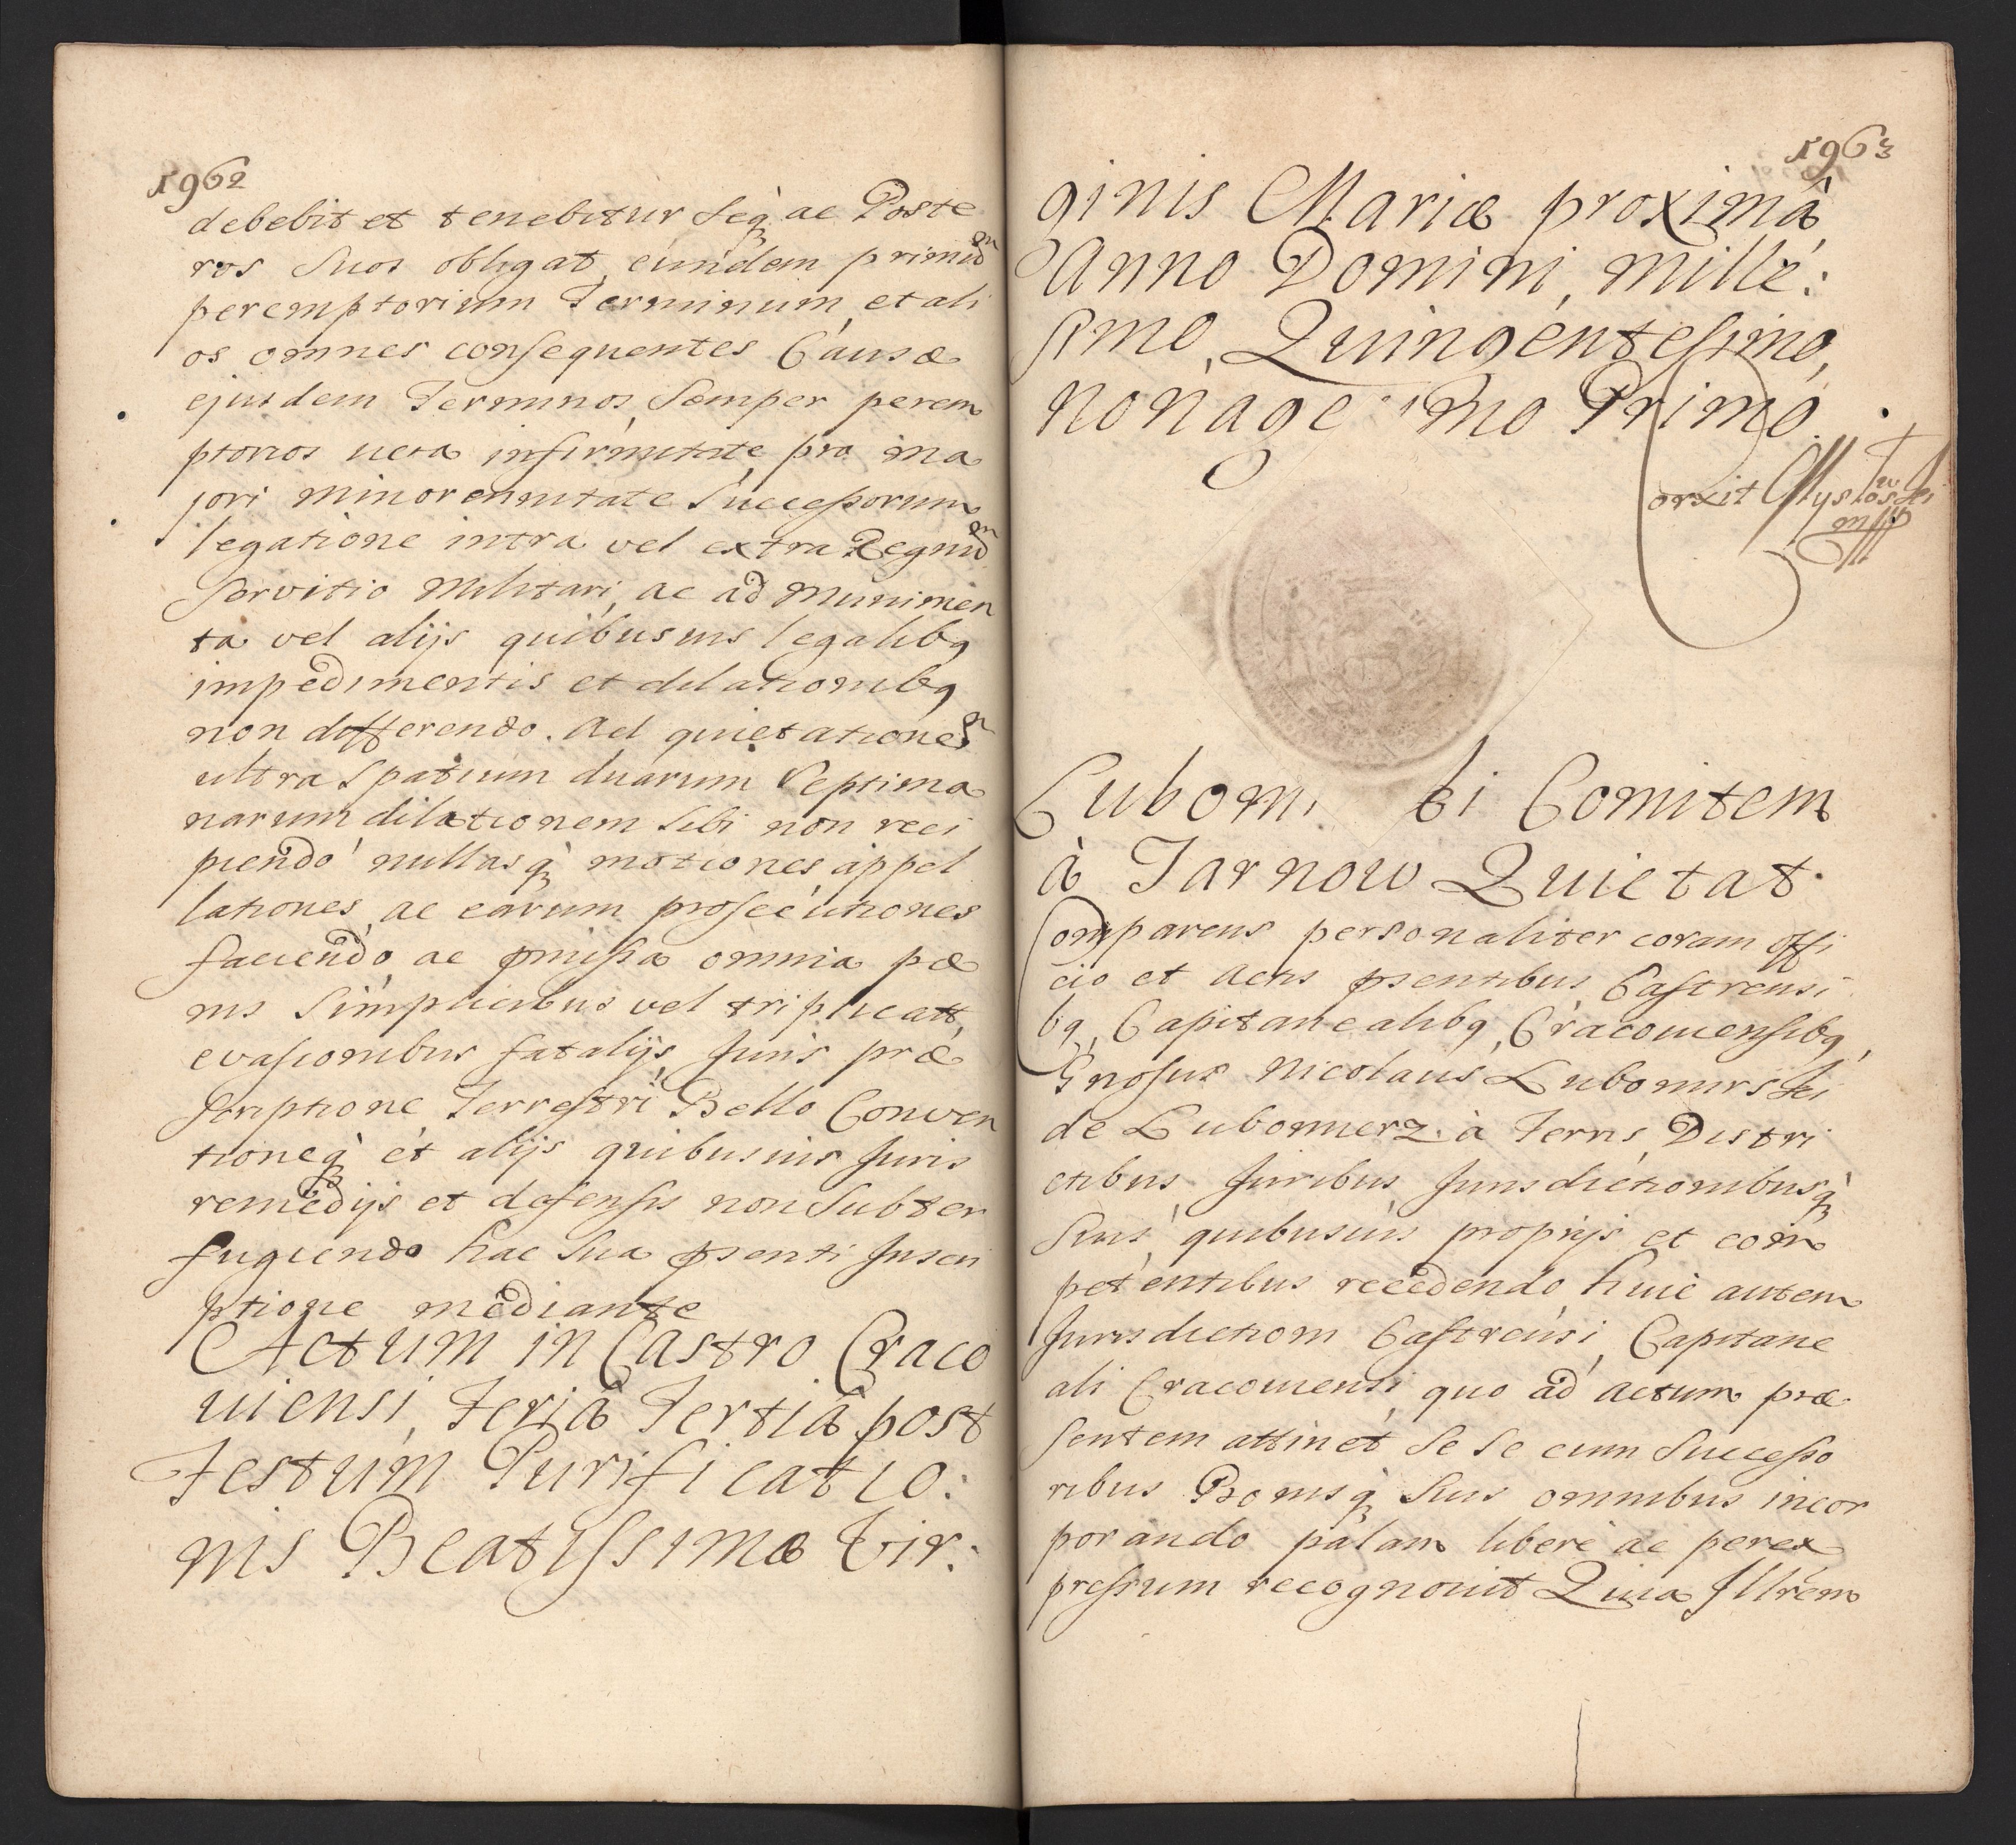 1962
debebit et tenebitur seq̃ ac Poste
ros Suos obligat, eundem primũ
peremptorium Terminum, et ali
os omnes consequentes Causæ
ejusdem Terminos, Semper perem
ptorios vera infirmitate, pro ma
jori minorennitate Successorum
legatione intra vel extra Regnũ
Servitio Militari, ac ad Munimen
ta vel alijs quibusuis legalibq
impedimentis et dilationibq
non differendo. Ad quietationem
ultra Spatium duarum Septima
narum dilationem Sibi non reci
piendo nullasq̃ motiones appel
lationes, ac earum prosecutiones
faciendo, ac pmissa omnia pæ
nis Simplicibus vel triplicatt,
evasionibus fatalijs, Juris præ
scriptione Terrestri Bello Conven
tioneq̃ et alijs quibusuis Juris
remedijs et defensis non Subter
fugiendo hac Sua psenti Inscri
ptione mediante
Actum in Castro Craco
uiensi, Feria Tertia post
Festum Purificatio:
nis Beatissimæ Vir:
1963
ginis Mariæ proximâ
Anno Domini, Mille:
simo, Quingentesimo,
nonage imo Primo
Lubomi ki Comitem
à Tarnow Quietat.
Comparens personaliter coram offi
cio et Actis psentibus Castrensi
bq, Capitanealibq, Cracouiensibq,
Gnosus Nicolaus Lubomirski
de Lubomierz à Terris, Distri
ctibus, Juribus, Jurisdictionibusq̃
Suis, quibusuis proprijs et com
petentibus recedendo, huic autem
Jurisdictioni Castrensi, Capitane
ali Cracouiensi, quo ad actum præ
sentem attinet, Se Se cum Successo
ribus Bonisq̃ Suis omnibus incor
porando palam libere ac per ex
pressum recognouit Quia Illrem